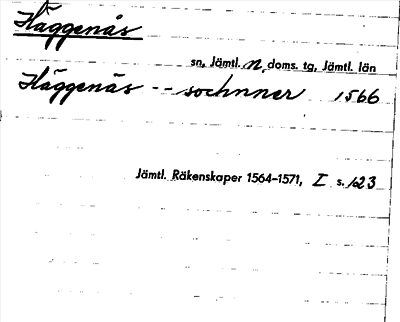 Häggenås
sn, Jämtl. n. doms. tg, Jämtl. län
Häggenås -- sochnner 1566
Jämtl. Räkenskaper 1564-1571, I s. 123